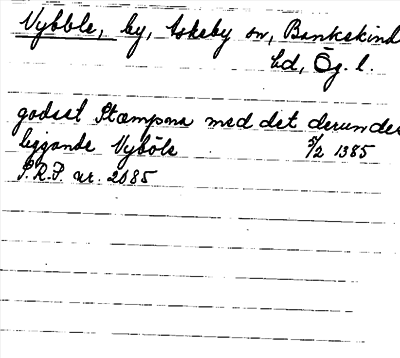 Nyböle, by, Askeby sn, Bankekind
hd, Ög. l.
godset Stampona med det derunder
liggande Nyböle 5/2 1385
S.R.P. nr. 2085